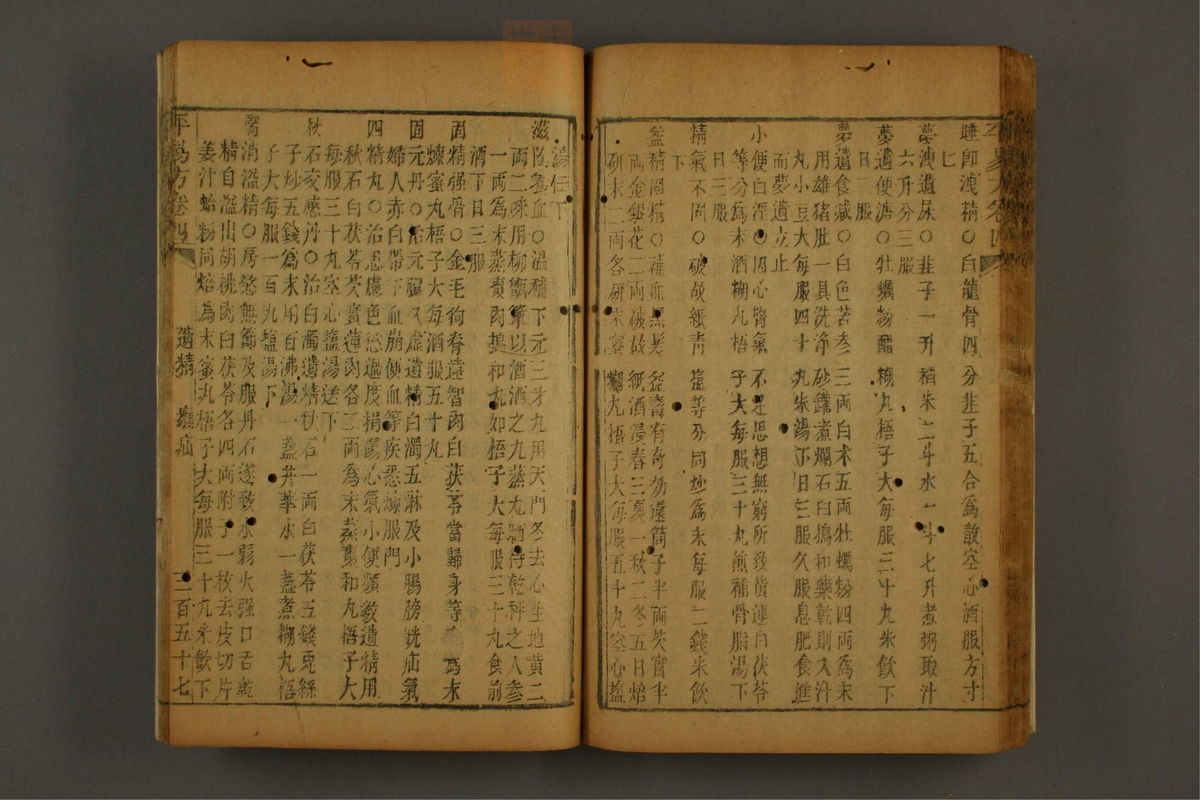 睡卽洩精○白龍骨四分韭子五合爲散空心酒服方寸
匕
夢洩遺尿○韭子一升稻米二斗水一斗七升煮粥取汁
六升分三服
夢遺便溏○牡蠣粉醋糊丸梧子大每服三十丸米飲下
日二服
夢遺食減○白色苦參三兩白朮五兩牡蠣粉四兩爲末
用雄猪肚一具洗淨砂鑵煮爛石臼搗和藥乾則入汁
丸小豆大每服四十丸米湯下日三服久服息肥食進
而夢遺立止
小便白淫○因心腎氣不足思想無窮所致黃連白茯苓
等分爲末酒糊丸梧子大每服三十丸煎補骨脂湯下
日三服
精氣不固○破故紙靑塩等分同炒爲末每服二錢米飲
下
益精固精○補血黑髮益壽有奇効還筒子半兩芡實半
兩金銀花二兩破故紙酒浸春三夏一秋二冬五日焙
研末二兩各研末蜜糊丸梧子大每服五十丸空心塩
湯任下
滋陰養血○溫補下元三才丸用天門冬去心生地黃二
兩二味用柳甑箄以酒洒之九蒸九晒待乾秤之人參
一兩爲末蒸棗肉搗和丸如梧子大每服三十丸食前
酒下日三服
固精强骨○金毛狗脊遠智肉白茯苓當歸身等分爲末
煉蜜丸梧子大每酒服五十丸
固元丹○治元臟久虛遺精白濁五淋及小腸膀胱疝氣
婦人赤白帶下血崩便血等疾悉煉服門
四精丸○治思慮色慾過度損傷心氣小便頻數遺精用
秋石白茯苓芡實蓮肉各二兩爲末蒸棗和丸梧子大
每服三十丸空心塩湯送下
秋石交感丹○治白濁遺精秋石一兩白茯苓五錢兎絲
子炒五錢爲末用百沸湯一盞井華水一盞煮糊丸梧
子大每服一百丸塩湯下
腎消溢精○房慾無節及服丹石遂致水弱火强口舌乾
精自溢出胡桃肉白茯苓各四兩附子一枚去皮切片
姜汁蛤粉同焙爲末蜜丸梧子大每服三十丸米飲下
平易方卷四 遺精 㿗疝 三百五十七